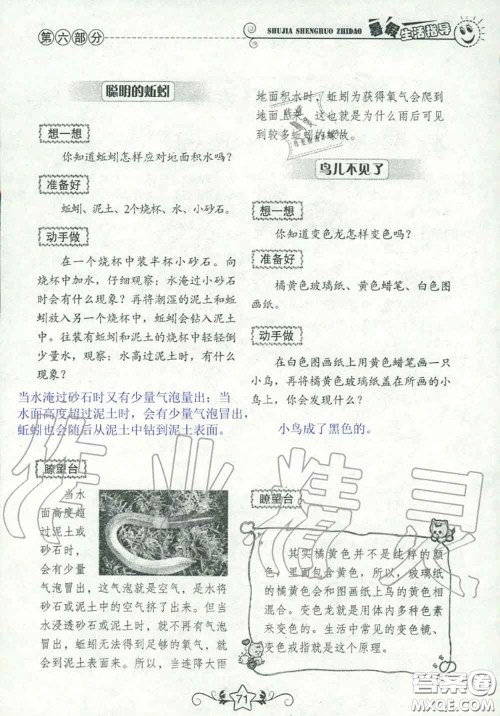 第六部分
SHUJIA SHENGHUO ZHIDAO
暑假生活指导
聪明的蚯蚓
想一想
你知道蚯蚓怎样应对地面积水吗？
准备好
蚯蚓、泥土、2个烧杯、水、小砂石。
动手做
在一个烧杯中装半杯小砂石。向
烧杯中加水，仔细观察：水淹过小砂石
时会有什么现象？再将潮湿的泥土和蚯
蚓放入另一个烧杯中，蚯蚓会钻入泥土
中。往装有蚯蚓和泥土的烧杯中轻轻倒
少量水，观察：水高过泥土时，有什么
现象？
当水淹过砂石时又有少量气泡量出；当
水面高度超过泥土时，会有少量气泡冒出，
蚯蚓也会随后从泥土中钻到泥土表面。
瞭望台
当水
面高度超
过泥土或
砂石时，
会有少量
气泡冒出，这气泡就是空气，是水将
砂石或泥土中的空气挤了出来。但当
水浸透砂石或泥土时，就不再有气泡
冒出，蚯蚓无法得到足够的氧气，就
会到泥土表面来。所以，当连降大雨
地面积水时，蚯蚓为获得氧气会爬到
地面上来。这也就是为什么雨后可见
到较多蚯蚓的缘故。
鸟儿不见了
想一想
你知道变色龙怎样变色吗？
准备好
橘黄色玻璃纸、黄色蜡笔、白色图
画纸。
动手做
在白色图画纸上用黄色蜡笔画一只
小鸟，再将橘黄色玻璃纸盖在所画的小
鸟上，你会发现什么？
小鸟成了黑色的。
瞭望台
其实橘黄色并不是纯粹的颜
色，里面包含黄色，所以，玻璃纸
的橘黄色会和图画纸上鸟的黄色相
混合。变色龙就是用体内多种色素
来变色的。生活中常见的变色镜、
变色或指就是这个原理。
71
作业精灵
答案圈
MXQE.COM